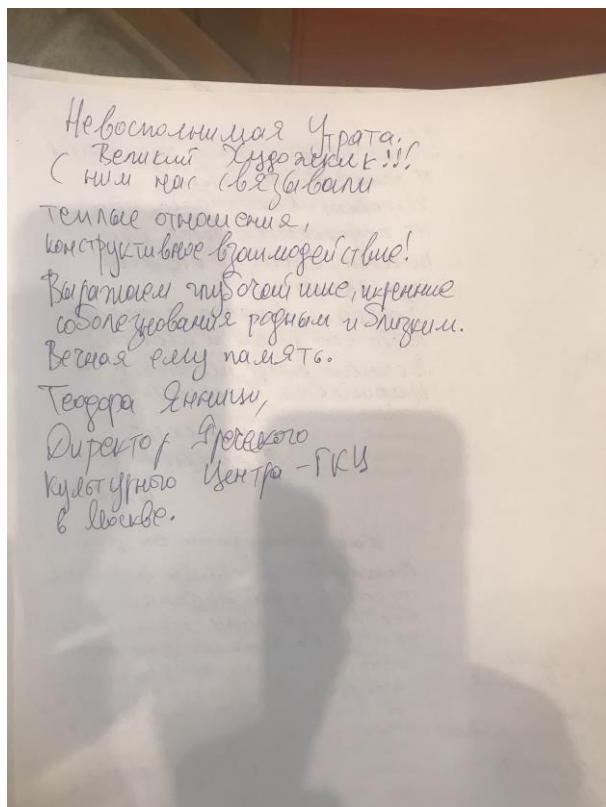 Невосполнимая Утрата.
Великий Художник!!!
С ним нас связывали
теплые отношения,
конструктивное взаимодействие!
Выражаем глубочайшие, искренние
соболезнования родным и близким.
Вечная ему память.
Теодора Янници,
Директор Греческого
культурного Центра - ГКЦ
в Москве.